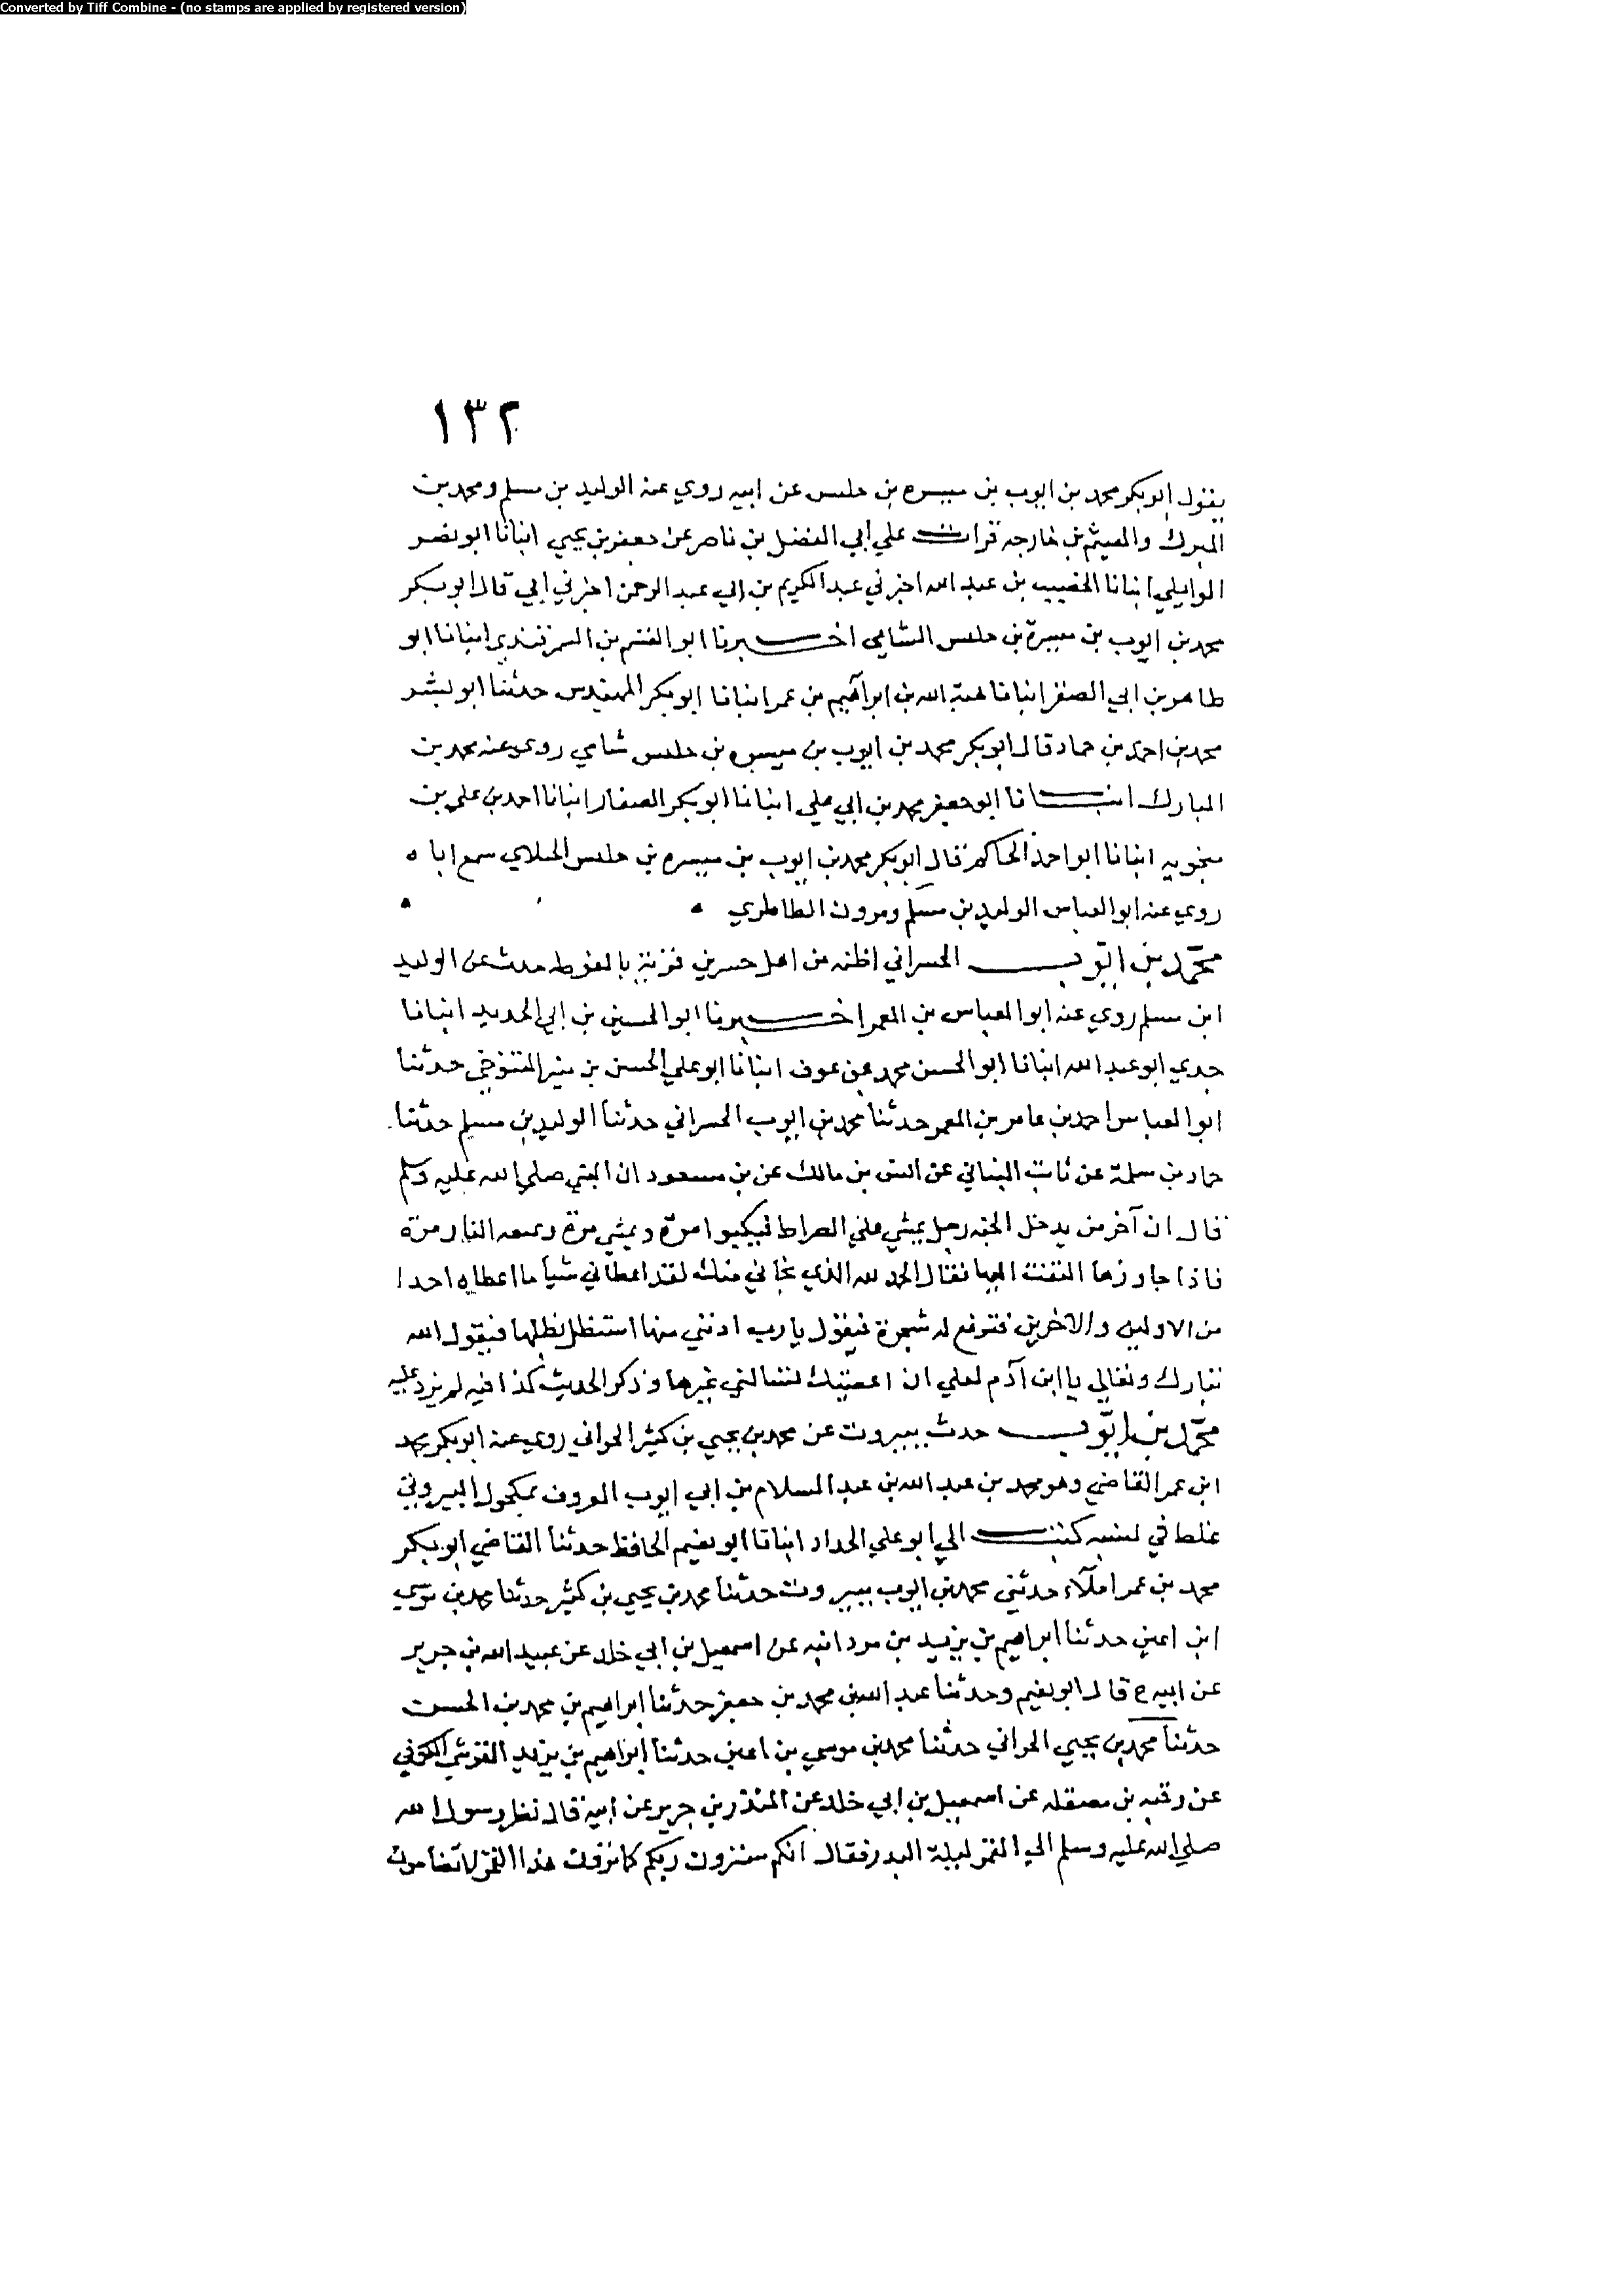 Converted by Tiff Combine - (no stamps are applied by registered version)
١٣٢
يقول ابو بكر محمد بن ايوب بن ميسره بن حلبس عن ابيه روي عنه الوليد بن مسلم ومحمد بن
المبرك والهيثم بن خارجه قرات علي ابي الفضل بن ناصر عن جعفر بن يحيي انبانا ابو نصر
الوايلي انبانا الخصيب بن عبد الله اخبرني عبد الكريم بن ابي عبد الرحمن اخبرني ابي قال ابو بكر
محمد بن ايوب بن ميسرة بن حلبس الشامي اخبرنا ابو القسم بن السمرقندي انبانا ابو
طاهر بن ابي الصقر انبانا هبة الله بن ابراهيم بن عمر انبانا ابو بكر المهندس حدثنا ابو بشر
محمد بن احمد بن حماد قال ابو بكر محمد بن ايوب بن ميسره بن حلبس شامي روي عنه محمد بن
المبارك انبانا ابو جعفر محمد بن ابي علي انبانا ابو بكر الصفار انبانا احمد بن علي بن
منجويه انبانا ابو احمد الحاكم قال ابو بكر محمد بن ايوب بن ميسره بن حلبس الجبلاي سمع اباه
روي عنه ابو العباس الوليد بن مسلم ومرون الطاطري
محمد بن ايوب الجسراني اظنه من اهل جسرين قرية بالغوطه حدث عن الوليد
ابن مسلم روي عنه ابو العباس بن المعمر اخبرنا ابو الحسين بن ابي الحديد انبانا
جدي ابو عبد الله انبانا ابو الحسن محمد بن عوف انبانا ابو علي الحسن بن منير التنوخي حدثنا
ابو العباس احمد بن عامر بن المعمر حدثنا محمد بن ايوب الجسراني حدثنا الوليد بن مسلم حدثنا
حماد بن سلمة عن ثابت البناني عن انس بن مالك عن بن مسعود ان النبي صلي الله عليه وسلم
قال ان آخر من يدخل الجنه رجل يمشي علي الصراط فيكبوا مرة ويمشي مرة وتسعه النار مرة
فاذا جاوزها التفت اليها فقال الحمد لله الذي نجاني منك لقد اعطاني شيا ما اعطاه احدا
من الاولين والاخرين فترفع له شجرة فيقول يا رب ادنني منها استظل بظلها فيقول الله
تبارك وتعالي يا ابن آدم لعلي ان اعطيتك تسالني غيرها وذكر الحديث كذا فيه لم يزد عليه
محمد بن ايوب حدث ببيروت عن محمد بن يحيي بن كثير الحراني روي عنه ابو بكر محمد
ابن عمر القاضي وهو محمد بن عبد الله بن عبد السلام بن ابي ايوب المعروف بمكحول البيروتي
غلط في نسبه كتب الي ابو علي الحداد انبانا ابو نعيم الحافظ حدثنا القاضي ابو بكر
محمد بن عمر املآء حدثني محمد بن ايوب ببيروت حدثنا محمد بن يحيي بن كثير حدثنا محمد بن موسي
ابن اعين حدثنا ابراهيم بن يزيد بن مردانبه عن اسمعيل بن ابي خلد عن عبيد الله بن جرير
عن ابيه ح قال ابو نعيم وحدثنا عبد الله بن محمد بن جعفر حدثنا ابراهيم بن محمد بن الحسن
حدثنا محمد بن يحيي الحراني حدثنا محمد بن موسي بن اعين حدثنا ابراهيم بن يزيد القرشي الكوفي
عن رقبه بن مصقله عن اسمعيل بن ابي خلد عن المنذر بن جرير عن ابيه قال نظر رسول الله
صلي الله عليه وسلم الي القمر ليلة البدر فقال انكم سترون ربكم كما ترون هذا القمر لا تضامون